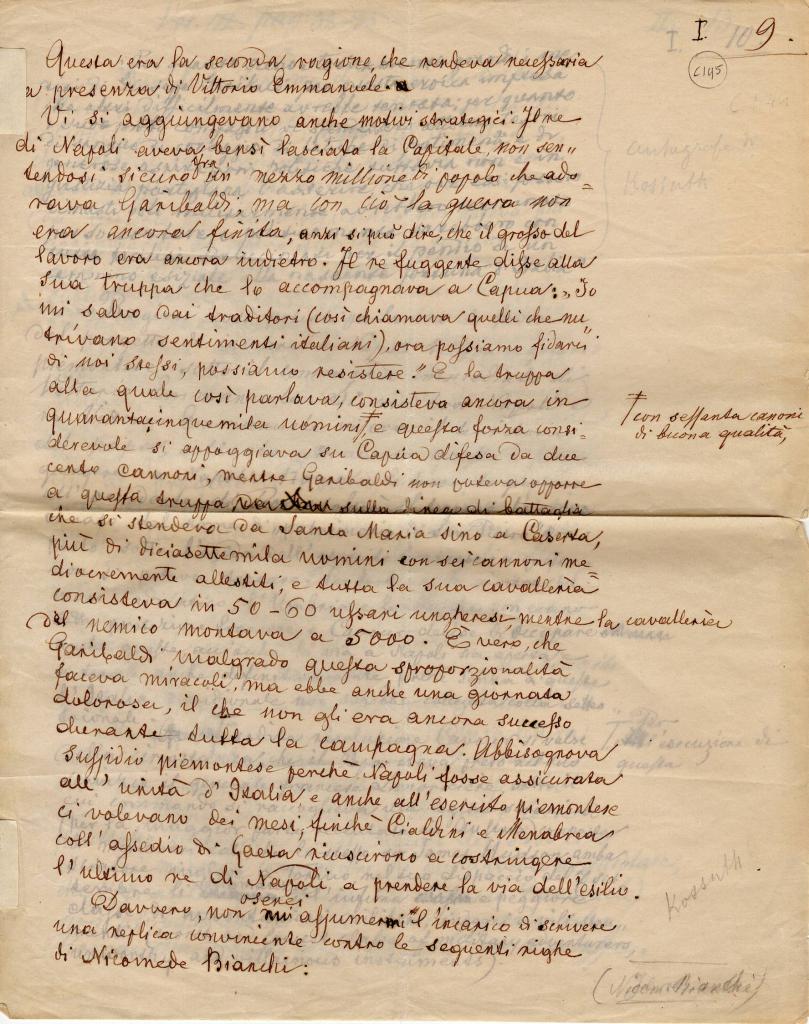 I. 9.
I. 10
C195
Questa era la seconda ragione, che rendeva necessaria
a presenza di Vittorio Emmanuele.
Vi si aggiungevano anche motivi strategici. Il re
di Napoli aveva bensì lasciato la Capitale, non sen„
tendosi sicuro fra un mezzo millione di popolo che ado=
rava Garibaldi, ma con ciò la guerra non
era ancora finita, anzi si può dire, che il grosso del
lavoro era ancora indietro. Il re fuggente disse alla
sua truppa che lo accompagnava a Capua: „Io
mi salvo dai traditori (così chiamava quelli che nu
trivano sentimenti italiani), ora possiamo fidarci
di noi stessi, possiamo resistere." E la truppa
alla quale così parlava, consisteva ancora in
quarantacinquemila uomini† e questa forza consi=
derevole si appoggiava su Capua difesa da due
cento cannoni, mentre Garibaldi non poteva opporre
a questa truppa sulla linea di battaglia
che si stendeva da Santa Maria sino a Caserta,
più di diciasettemila uomini con sei cannoni me=
diocremente allestiti, e tutta la sua cavalleria
consisteva in 50-60 ussari ungheresi, mentre la cavalleria
del nemico montava a 5000. È vero, che
Garibaldi malgrado questa sproporzionalità
faceva miracoli, ma ebbe anche una giornata
dolorosa, il che non gli era ancora successo
durante tutta la campagna. Abbisognava
sussidio piemontese perchè Napoli fosse assicurata
all' unità d' Italia e anche all' esercito piemontese
ci volevano dei mesi, finchè Cialdini e Menabrea
coll' assedio di Gaeta riuscirono a costringere
l' ultimo re di Napoli a prendere la via dell' esilio.
Davvero, non oserei assumermi l' incarico di scrivere
una replica conveniente contro le seguenti righe
di Nicomede Bianchi:
†con sessanta canoni
di buona qualità,
autografo di
Kossuth
Kossuth
(Nicom. Bianchi)